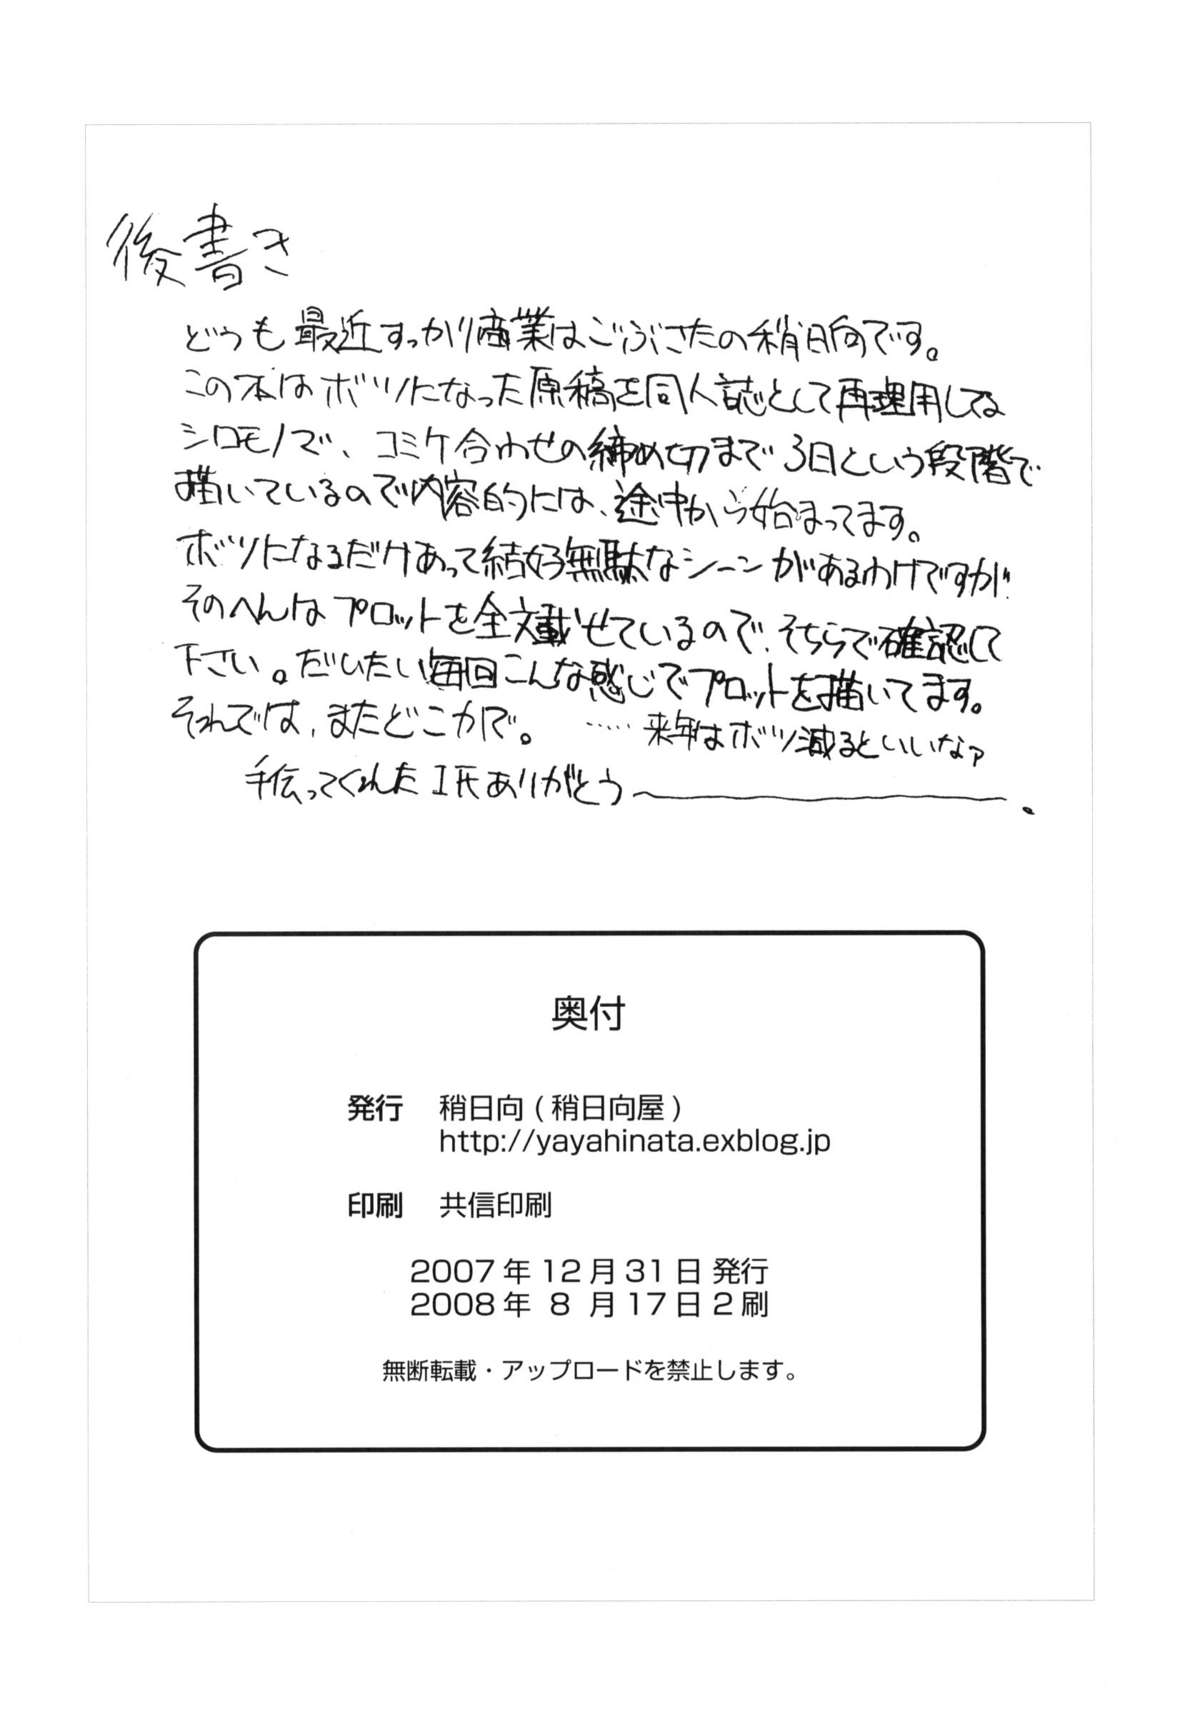 後書き
どうも最近すっかり商業はごぶさたの稍日向です。
この本はボツになった原稿を同人誌として再理用してる
シロモノで、コミケ合わせの締め切まで3日という段階で
描いているので内容的には、途中から始まってます。
ボツになるだけあって結好無駄なシーンがあるわけですが
そのへんはプロットを全文載せているので、そちらで確認して
下さい。だいたい毎回こんな感じでプロットを描いてます。
それでは、またどこかで。 ……来年はボツ減るといいなァ
手伝ってくれたI氏ありがとう〜。
奥付
発行 稍日向(稍日向屋)
http://yayahinata.exblog.jp
印刷 共信印刷
2007年12月31日 発行
2008年 8 月17日 2刷
無断転載・アップロードを禁止します。